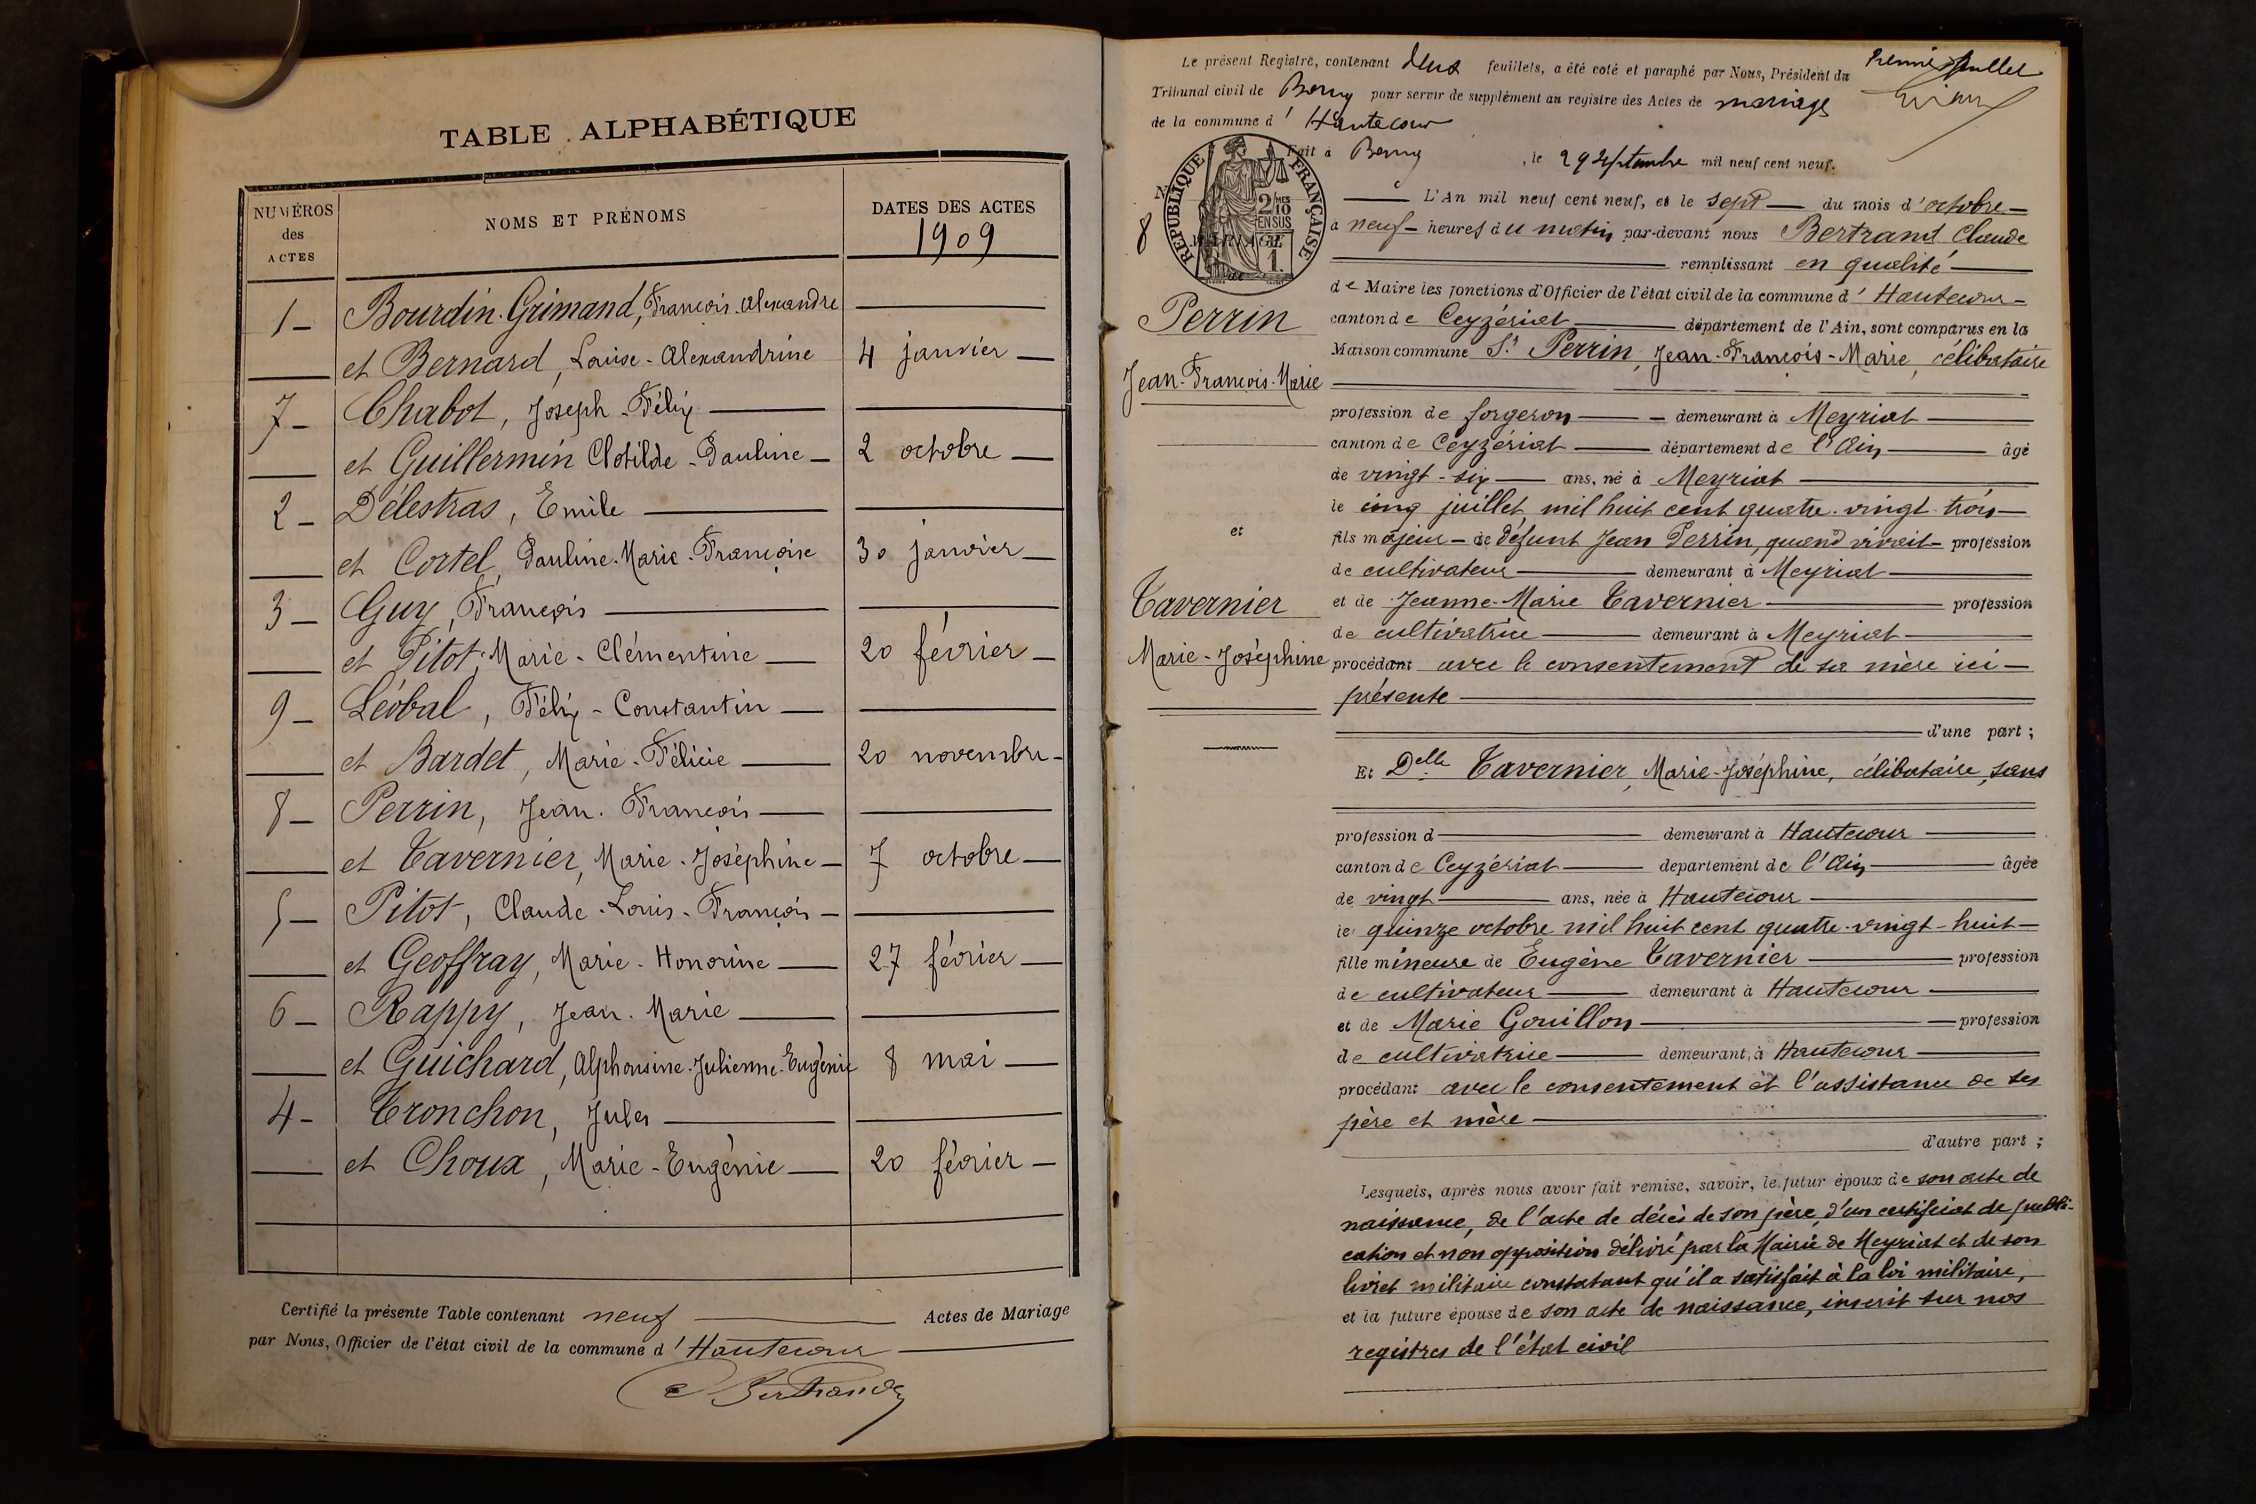 TABLE ALPHABÉTIQUE
NUMÉROS
des
ACTES
NOMS ET PRÉNOMS
DATES DES ACTES
1909
1 Bourdin-Grimand, François-Alexandre
et Bernard, Louise-Alexandrine 4 janvier
7 Chabot, Joseph-Félix
et Guillermin Clotilde-Pauline 2 octobre
2 Délestras, Emile
et Cortel, Pauline-Marie-Françoise 30 janvier
3 Guy, François
et Pitot, Marie-Clémentine 20 février
9 Léobal, Félix-Constantin
et Bardet, Marie-Félicie 20 novembre
8 Perrin, Jean-François
et Tavernier, Marie-Joséphine 7 octobre
5 Pitot, Claude-Louis-François
et Geoffray, Marie-Honorine 27 février
6 Rappy, Jean-Marie
et Guichard, Alphonsine-Julienne-Eugénie 8 mai
4 Tronchon, Jules
et Choux, Marie-Eugénie 20 février
Certifié la présente Table contenant neuf Actes de Mariage
par Nous, Officier de l'état civil de la commune d'Hautecour
C Bertrand
Le présent Registre, contenant deux feuillets, a été coté et paraphé par Nous, Président du
Tribunal civil de Bourg pour servir de supplément au registre des Actes de mariage
de la commune d'Hautecour
Fait à Bourg, le 29 septembre mil neuf cent neuf.
Premier feuillet
RÉPUBLIQUE FRANÇAISE
2/10MES
EN SUS
1.
N°
8
Perrin
Jean-François-Marie
et
Tavernier
Marie-Joséphine
L'An mil neuf cent neuf, et le sept du mois d'octobre
à neuf heures du matin par-devant nous Bertrand Claude
remplissant en qualité
de Maire les fonctions d'Officier de l'état civil de la commune d'Hautecour
canton de Ceyzériat département de l'Ain, sont comparus en la
Maison commune Sr Perrin, Jean-François-Marie, célibataire
profession de forgeron demeurant à Meyriat
canton de Ceyzériat département de l'Ain âgé
de vingt-six ans, né à Meyriat
le cinq juillet mil huit cent quatre-vingt-trois
fils majeur de défunt Jean Perrin, quand vivait profession
de cultivateur demeurant à Meyriat
et de Jeanne-Marie Tavernier profession
de cultivatrice demeurant à Meyriat
procédant avec le consentement de sa mère ici
présente
d'une part ;
Et Delle Tavernier, Marie-Joséphine, célibataire, sans
profession d demeurant à Hautecour
canton de Ceyzériat département de l'Ain âgée
de vingt ans, née à Hautecour
le quinze octobre mil huit cent quatre-vingt-huit
fille mineure de Eugène Tavernier profession
de cultivateur demeurant à Hautecour
et de Marie Gouillon profession
de cultivatrice demeurant à Hautecour
procédant avec le consentement et l'assistance de ses
père et mère
d'autre part ;
Lesquels, après nous avoir fait remise, savoir, le futur époux de son acte de
naissance, de l'acte de décès de son père, d'un certificat de publi-
cation et non opposition délivré par la Mairie de Meyriat et de son
livret militaire constatant qu'il a satisfait à la loi militaire,
et la future épouse de son acte de naissance, inscrit sur nos
registres de l'état civil